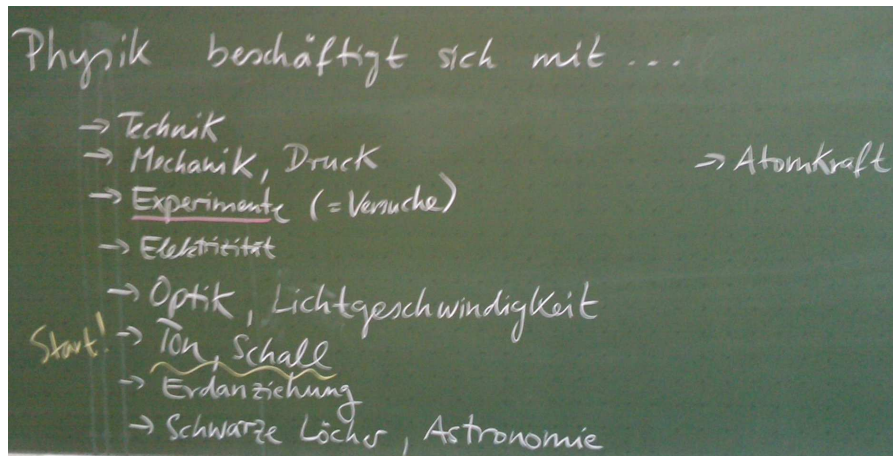 Physik beschäftigt sich mit ...
→ Technik
→ Mechanik, Druck
→ Atomkraft
→ Experimente (= Versuche)
→ Elektrizität
→ Optik, Lichtgeschwindigkeit
Start! → Ton, Schall
→ Erdanziehung
→ Schwarze Löcher, Astronomie